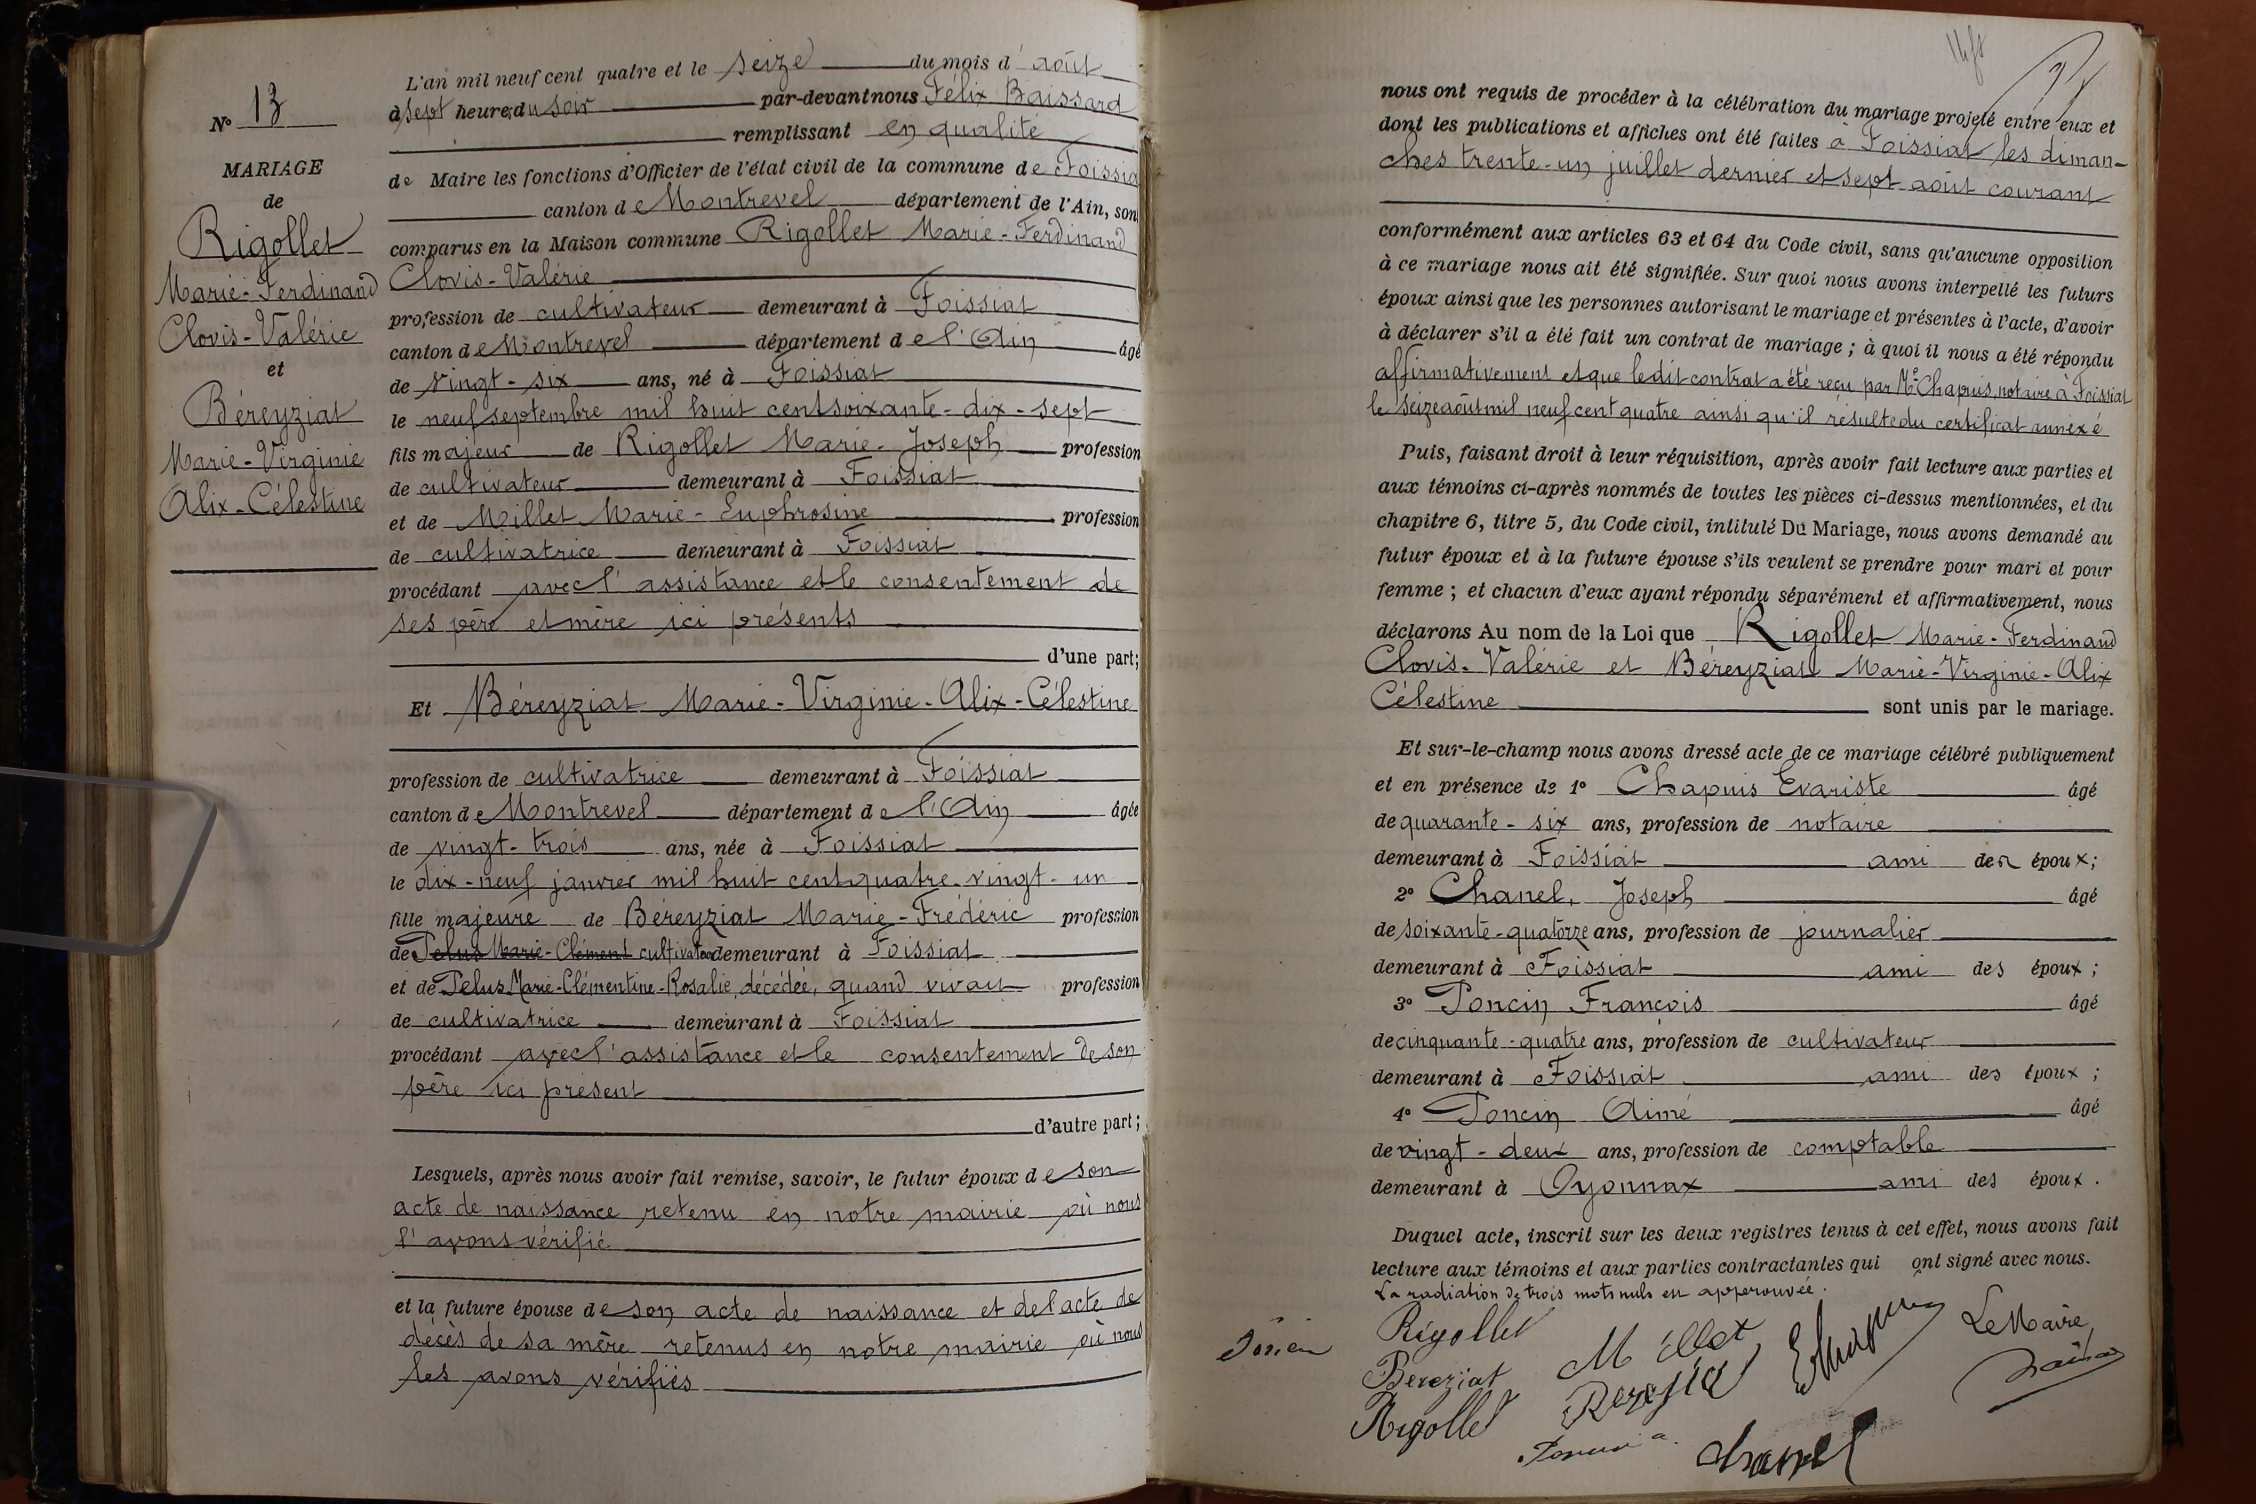 N° 13
MARIAGE
de
Rigollet
Marie-Ferdinand
Clovis-Valérie
et
Béreyziat
Marie-Virginie
Alix-Célestine
L'an mil neuf cent quatre et le seize du mois d'août
à sept heures du soir par-devant nous Félix Baissard
remplissant en qualité
de Maire les fonctions d'Officier de l'état civil de la commune de Foissia
canton de Montrevel département de l'Ain, son
comparus en la Maison commune Rigollet Marie-Ferdinand
Clovis-Valérie
profession de cultivateur demeurant à Foissiat
canton de Montrevel département de l'Ain âgé
de vingt-six ans, né à Foissiat
le neuf septembre mil huit cent soixante-dix-sept
fils majeur de Rigollet Marie-Joseph profession
de cultivateur demeurant à Foissiat
et de Millet Marie-Euphrosine profession
de cultivatrice demeurant à Foissiat
procédant avec l'assistance et le consentement de
ses père et mère ici présents
d'une part;
Et Béreyziat Marie-Virginie-Alix-Célestine
profession de cultivatrice demeurant à Foissiat
canton de Montrevel département de l'Ain âgée
de vingt-trois ans, née à Foissiat
le dix-neuf janvier mil huit cent quatre-vingt-un
fille majeure de Béreyziat Marie-Frédéric profession
de Pelus Marie-Clément cultivateur demeurant à Foissiat
et de Pelus Marie-Clémentine-Rosalie, décédée, quand vivait profession
de cultivatrice demeurant à Foissiat
procédant avec l'assistance et le consentement de son
père ici présent
d'autre part;
Lesquels, après nous avoir fait remise, savoir, le futur époux de son
acte de naissance retenu en notre mairie où nous
l'avons vérifié
et la future épouse de son acte de naissance et de l'acte de
décès de sa mère retenus en notre mairie où nous
les avons vérifiés
nous ont requis de procéder à la célébration du mariage projeté entre eux et
dont les publications et affiches ont été faites à Foissiat les diman-
ches trente-un juillet dernier et sept août courant
conformément aux articles 63 et 64 du Code civil, sans qu'aucune opposition
à ce mariage nous ait été signifiée. Sur quoi nous avons interpellé les futurs
époux ainsi que les personnes autorisant le mariage et présentes à l'acte, d'avoir
à déclarer s'il a été fait un contrat de mariage ; à quoi il nous a été répondu
affirmativement et que ledit contrat a été reçu par Me Chapuis, notaire à Foissiat
le seize août mil neuf cent quatre ainsi qu'il résulte du certificat annexé
Puis, faisant droit à leur réquisition, après avoir fait lecture aux parties et
aux témoins ci-après nommés de toutes les pièces ci-dessus mentionnées, et du
chapitre 6, titre 5, du Code civil, intitulé Du Mariage, nous avons demandé au
futur époux et à la future épouse s'ils veulent se prendre pour mari et pour
femme ; et chacun d'eux ayant répondu séparément et affirmativement, nous
déclarons Au nom de la Loi que Rigollet Marie-Ferdinand
Clovis-Valérie et Béreyziat Marie-Virginie-Alix
Célestine sont unis par le mariage.
Et sur-le-champ nous avons dressé acte de ce mariage célébré publiquement
et en présence de 1° Chapuis Evariste âgé
de quarante-six ans, profession de notaire
demeurant à Foissiat ami des époux;
2° Chanel, Joseph âgé
de soixante-quatorze ans, profession de journalier
demeurant à Foissiat ami des époux ;
3° Poncin François âgé
de cinquante-quatre ans, profession de cultivateur
demeurant à Foissiat ami des époux ;
4° Poncin Aimé âgé
de vingt-deux ans, profession de comptable
demeurant à Oyonnax ami des époux.
Duquel acte, inscrit sur les deux registres tenus à cet effet, nous avons fait
lecture aux témoins et aux parties contractantes qui ont signé avec nous.
La radiation de trois mots nuls est approuvée.
Rigollet
Millet
Le Maire,
Bereziat
Rigollet
Chanel